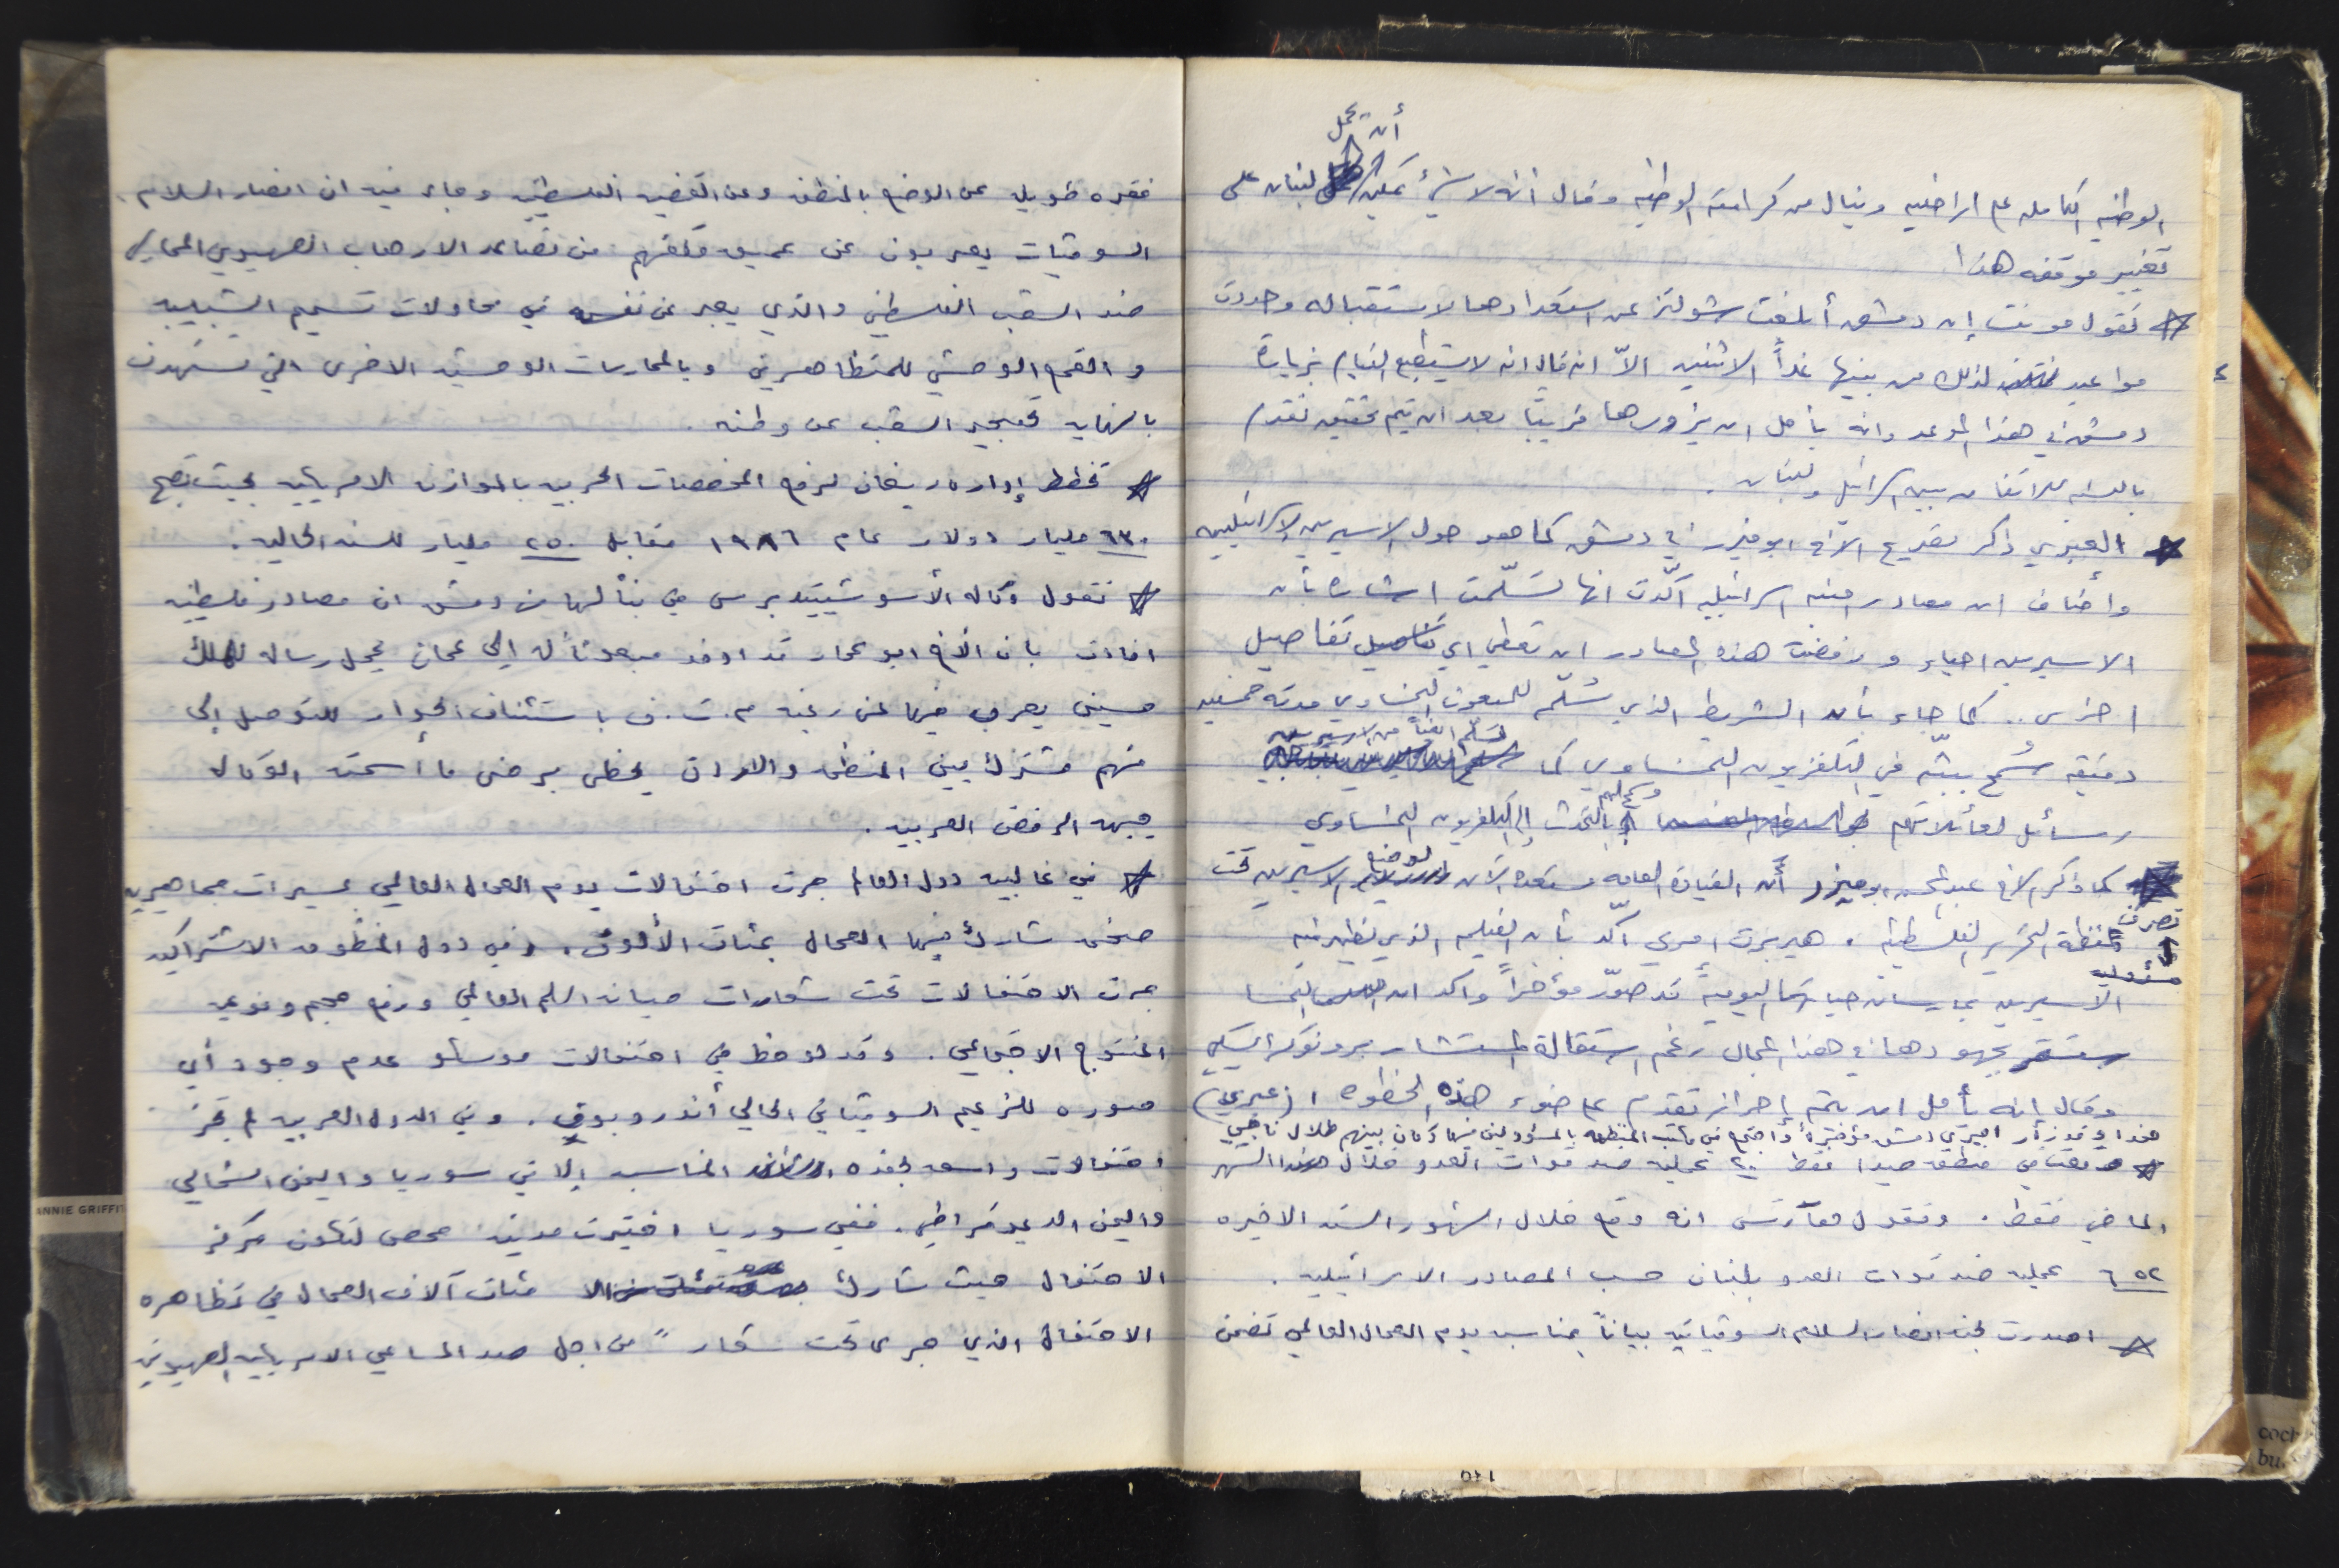 أن تحمل
الوطنيه الكامله على اراضيه وينال من كرامته الوطنيه وقال انه لا شيء يمكن لبنان على
تغيير موقفه هذا
تقول مونت إن دمشق أبلغت شولتز عن استعدادها لاستقباله وحددت
مواعيد لذلك من بينها غداً الاثنين الاّ انه قال انه لا يستطيع القيام بزيارة
دمشق في هذا الموعد وانه يأمل ان يزورها قريباً بعد ان يتم تحقيق تقدم
بالنسبه للاتفاق بين اسرائيل ولبنان .
العبري ذكر تصريح الأخ ابو ميزر في دمشق كما هو حول الاسيرين الاسرائيليين
وأضاف ان مصادر امنيه اسرائيليه اكّدت انها تسلّمت اشاره بأن
الاسيرين احياء و رفضت هذه المصادر ان تعطي اي تفاصيل
اخرى .. كما جاء بأن الشريط الذي سُلّم للمبعوث النمساوي مدته خمسين
تسلّم ايضاً من الاسيرين
دقيقه سُمح ببثّه في التلفزيون النمساوي كما
رسائل لعائلاتهم وسُمح لهم بالتحدث إلى التلفزيون النمساوي
كما ذكر الأخ عبد المحسن ابو ميزر أن القيادة العامه مستعدة الآن لوضع الاسيرين تحت
تصرف
مسؤولية
منظمة التحرير الفلسطينيه . هيربرت امري اكّد بأن الفيلم الذي يظهر فيه
الاسيرين يمارسان حياتهما اليوميةً قد صوّر مؤخراً واكد ان النمسا
ستستمر بجهودها في هذا المجال رغم استقالة المستشار برونو كرايسكي
وقال إنه يأمل ان يتم إحراز تقدم على ضوء هذه الخطوه ا (عبري)
هذا وقد زار امري دمشق مؤخراً واجتمع في مكتب المنظمه بالمسؤولين فيها وكان بينهم طلال ناجي
وقعت في منطقه صيدا فقط ٢٠ عمليه ضد قوات العدو خلال هذا الشهر
الماضي فقط . وتقول معآرتس انه وقع خلال الشهور السته الاخيره
٦٥٢ عمليه ضد قوات العدو بلبنان حسب المصادر الاسرائيليه .
اصدرت لجنه انصار السلام السوفياتيه بياناً بمناسبه يوم العمال العالمي تضمن
فقره طويله عن الوضع بالمنطقه وعن القضيه الفلسطينيه وجاء فيه ان انصار السلام
السوفيات يعبرون عن عميق قلقهم من تصاعد الارهاب الصهيوني
ضد الشعب الفلسطيني والذي يعبر عن نفسه في محاولات تسميم الشبيبه
و القمع الوحشي للمتظاهرين وبالممارسات الوحشيه الاخرى التي تستهدف
بالنهايه تهجير الشعب عن وطنه .
تخطط إداره ريغان لرفع المخصصات الحربيه بالموازنه الامريكيه بحيث تصبح
٦٣٠ مليار دولار عام ١٩٨٦ مقابل ٢٥٠ مليار للسنه الحاليه .
تقول وكاله الأسوشييتدبرس في نبأ لها من دمشق ان مصادر فلسطينيه
افادت بان الأخ ابو عمار قد اوفد مبعوثاً له إلى عمان يحمل رساله للملك
حسين يعرب فيها عن رغبه م.ت.ف باستئناف الحوار للتوصل إلى
تفهم مشترك بين المنظمه والاردن يحظى برضى ما أسمته الوكاله
جبهه الرفض العربيه .
في غالبيه دول العالم جرت احتفالات يوم العمال العالمي بمسيرات جماهيريه
ضخمه شارك فيها العمال بمئات الألوف . وفي دول المنظومه الاشتراكيه
جرت الاحتفالات تحت شعارات صيانه السلم العالمي ورفع حجم ونوعيه
المنتوج الاجتماعي . وقد لوحظ في احتفالات موسكو عدم وجود أي
صوره للزعيم السوفياتي الحالي أندروبوف . وفي الدول العربيه لم تجر
احتفالات واسعه لهذه المناسبه إلا في سوريا واليمن الشمالي
واليمن الديموقراطي . ففي سوريا اختيرت مدينه حمص لتكون مركز
الاحتفال حيث شارك مئات آلاف العمال في تظاهره
الاحتفال الذي جرى تحت شعار " من اجل صد المساعي الامريكيه الصهيونيه
ANNIE GRIFFIT